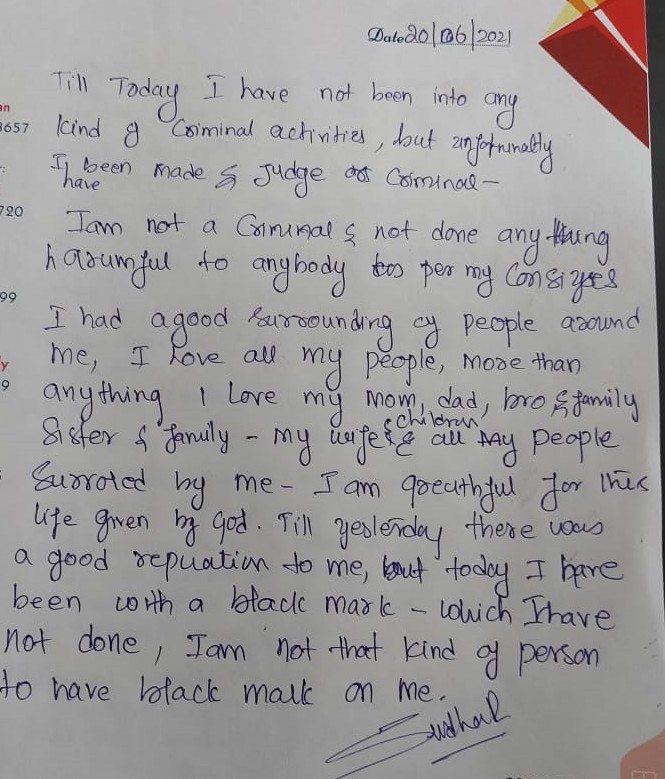 Date 20/06/2021
Till Today I have not been into any
an
3657
kind of Criminal activities, but unfortunalty
I have been made & Judge as Criminal –
720
I am not a Criminal & not done any thing
harumful to anybody as per my Consizes
99
I had a good Surrounding of people around
y
me, I Love all my people, more than
9
anything I Love my mom, dad, bro & family
Sister & family – my wife & children & all my people
Surroted by me – I am greathful for this
life given by god. Till yesterday there was
a good repuation to me, but today I have
been with a black mark – which I have
not done, I am not that kind of person
to have black mark on me.
Sudhak